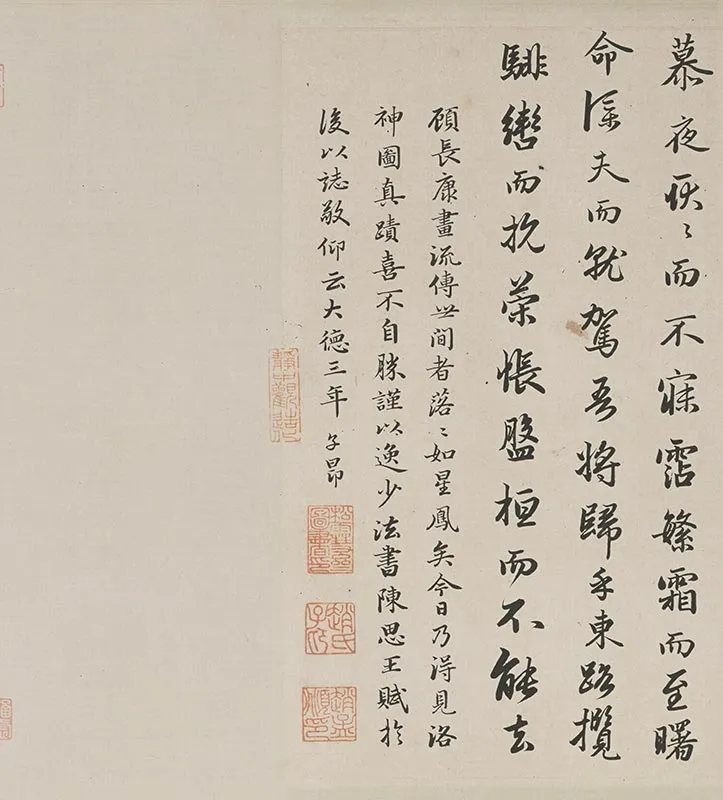 慕夜耿〻而不寐霑繁霜而至曙
命僕夫而就駕吾將歸乎東路攬
騑轡而抗策悵盤桓而不能去
顧長康畫流傳世間者落〻如星鳳矣今日乃得見洛
神圖真蹟喜不自勝謹以逸少法書陳思王賦於
後以誌敬仰云大德三年 子昂
松雪齋圖書印
趙氏子昂
趙孟頫印